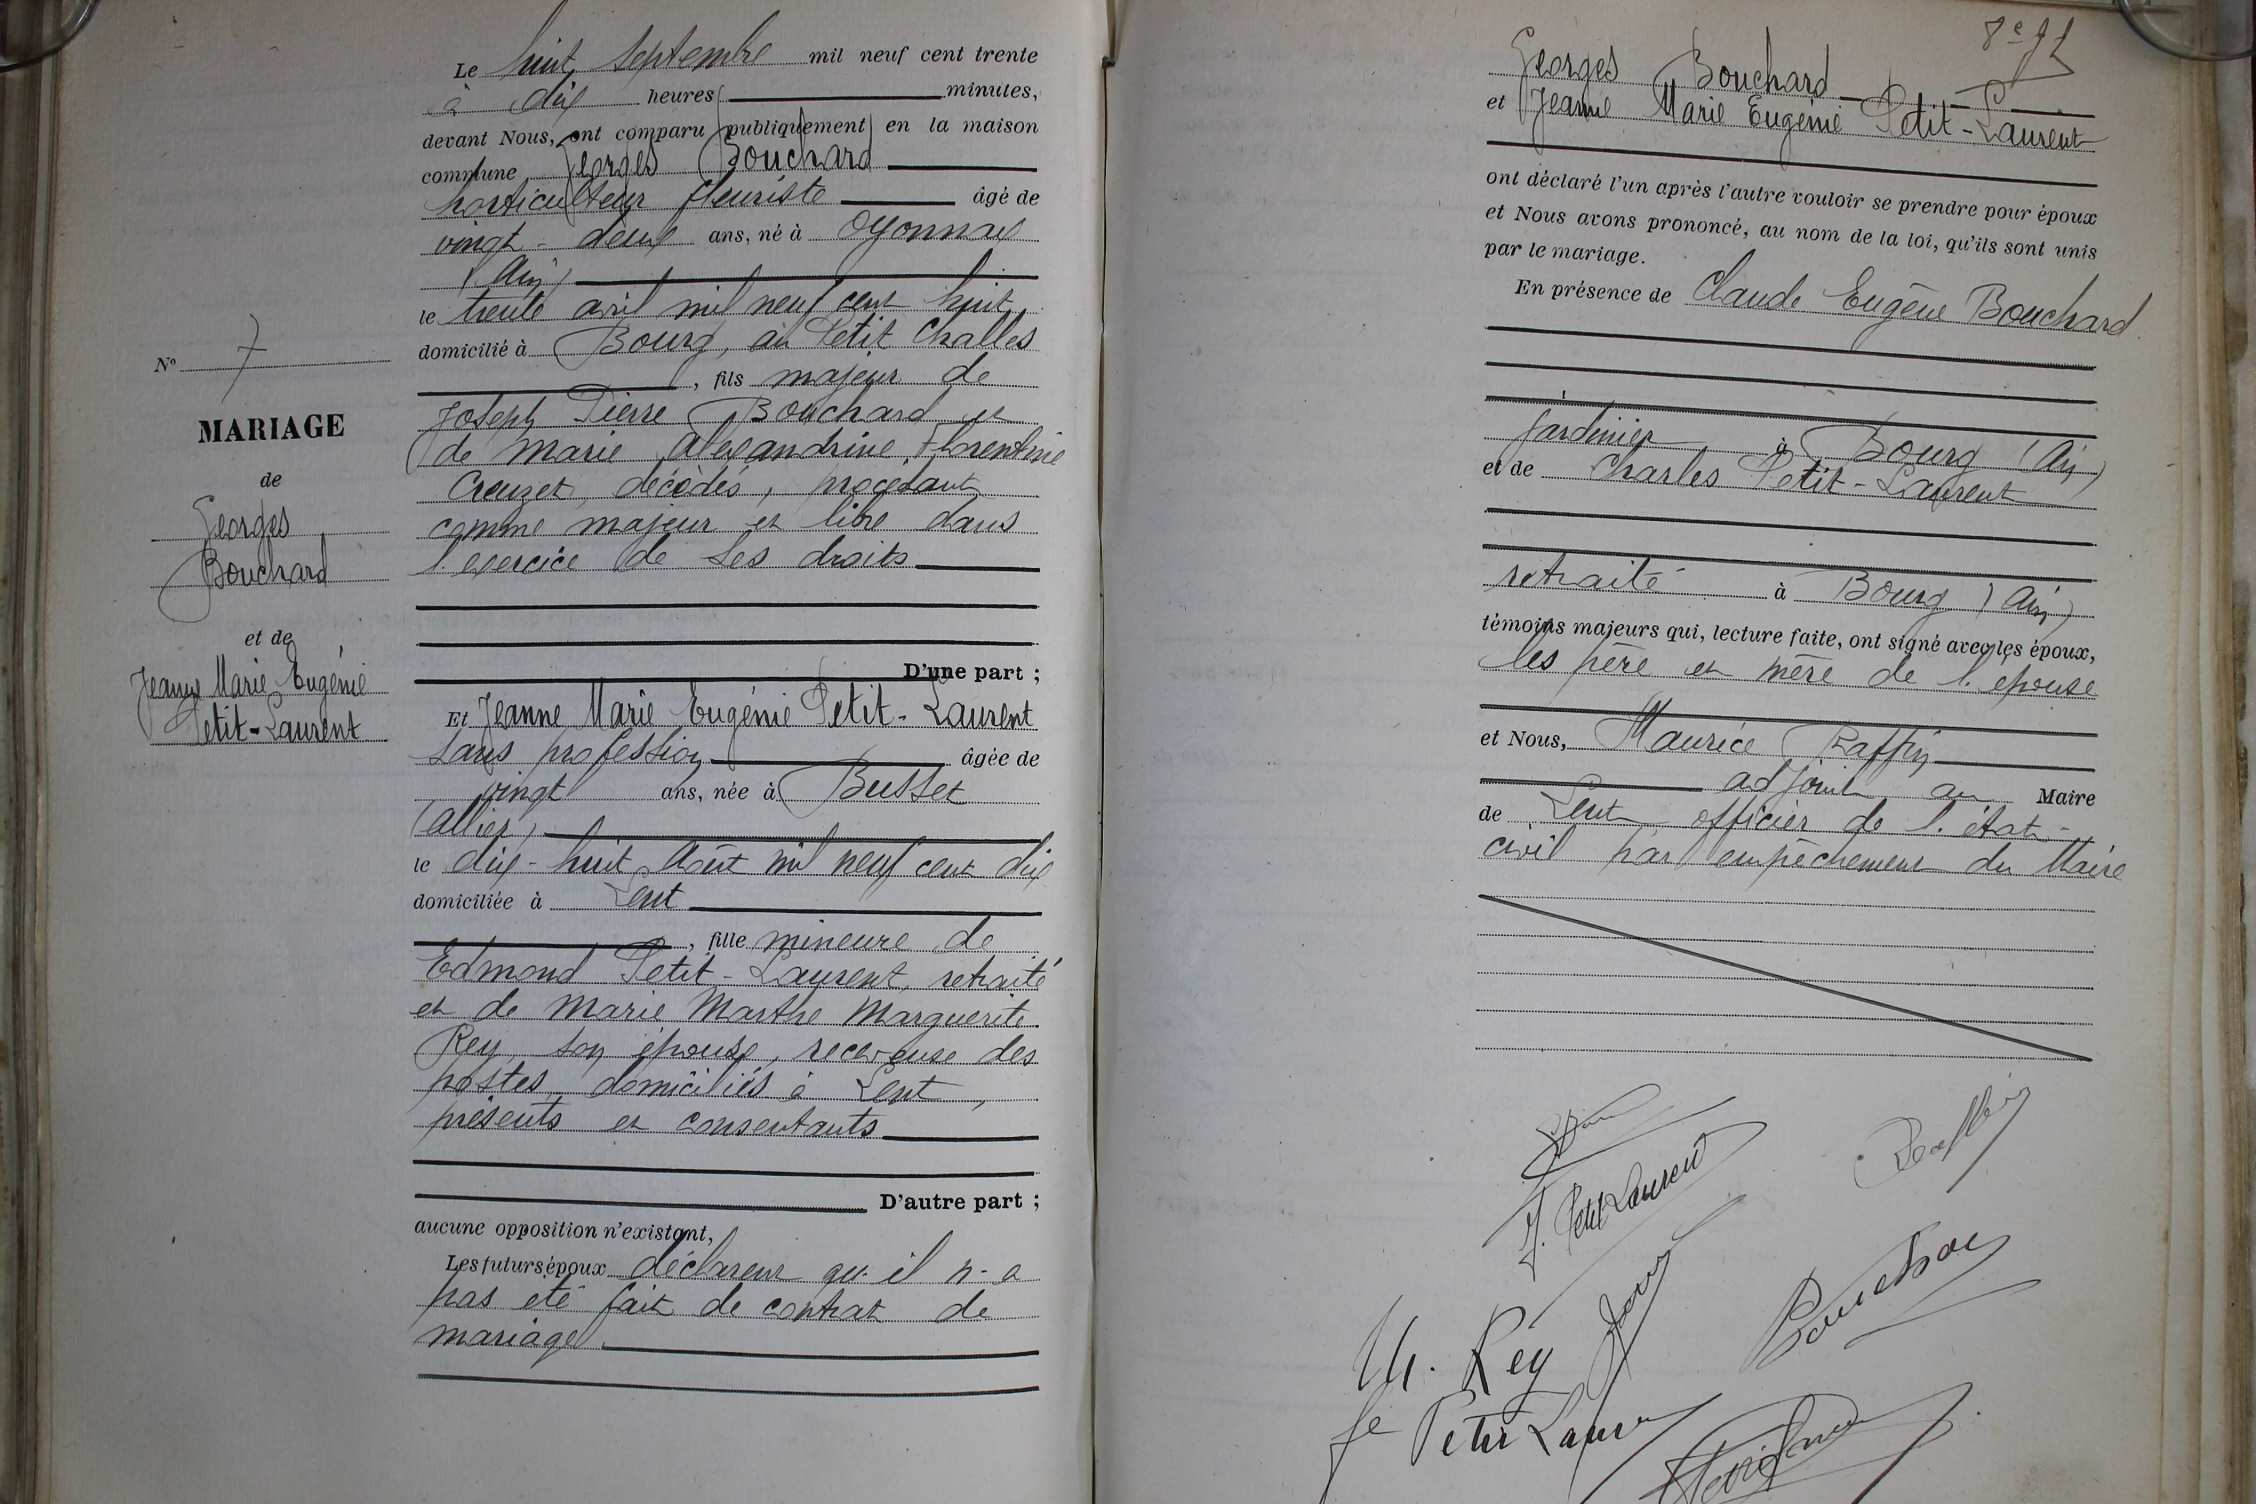 Le huit septembre mil neuf cent trente
à dix heures minutes,
devant Nous, ont comparu publiquement en la maison
commune Georges Bouchard
horticulteur fleuriste âgé de
vingt-deux ans, né à Oyonnax
(Ain)
le trente avril mil neuf cent huit
domicilié à Bourg, au Petit Challes
, fils majeur de
Joseph Pierre Bouchard et
de Marie Alexandrine Florentine
Creuzet, décédés, procédant
comme majeur et libre dans
l'exercice de ses droits
D'une part ;
Et Jeanne Marie Eugénie Petit-Laurent
sans profession âgée de
vingt ans, née à Busset
(Allier)
le dix-huit Août mil neuf cent dix
domiciliée à Lent
, fille mineure de
Edmond Petit-Laurent, retraité
et de Marie Marthe Marguerite
Rey, son épouse, receveuse des
postes, domiciliés à Lent,
présents et consentants
D'autre part ;
aucune opposition n'existant,
Les futurs époux déclarent qu'il n'a
pas été fait de contrat de
mariage
N° 7
MARIAGE
de
Georges
Bouchard
et de
Jeanne Marie Eugénie
Petit-Laurent
Georges Bouchard
et Jeanne Marie Eugénie Petit-Laurent
ont déclaré l'un après l'autre vouloir se prendre pour époux
et Nous avons prononcé, au nom de la loi, qu'ils sont unis
par le mariage.
En présence de Claude Eugène Bouchard
jardinier à Bourg (Ain)
et de Charles Petit-Laurent
retraité à Bourg (Ain)
témoins majeurs qui, lecture faite, ont signé avec les époux,
les père et mère de l'épouse
et Nous, Maurice Raffin
adjoint au Maire
de Lent officier de l'état-
civil par empêchement du Maire
J. Petit Laurent
Raffin
Bouchard
M. Rey
Petit Laurent